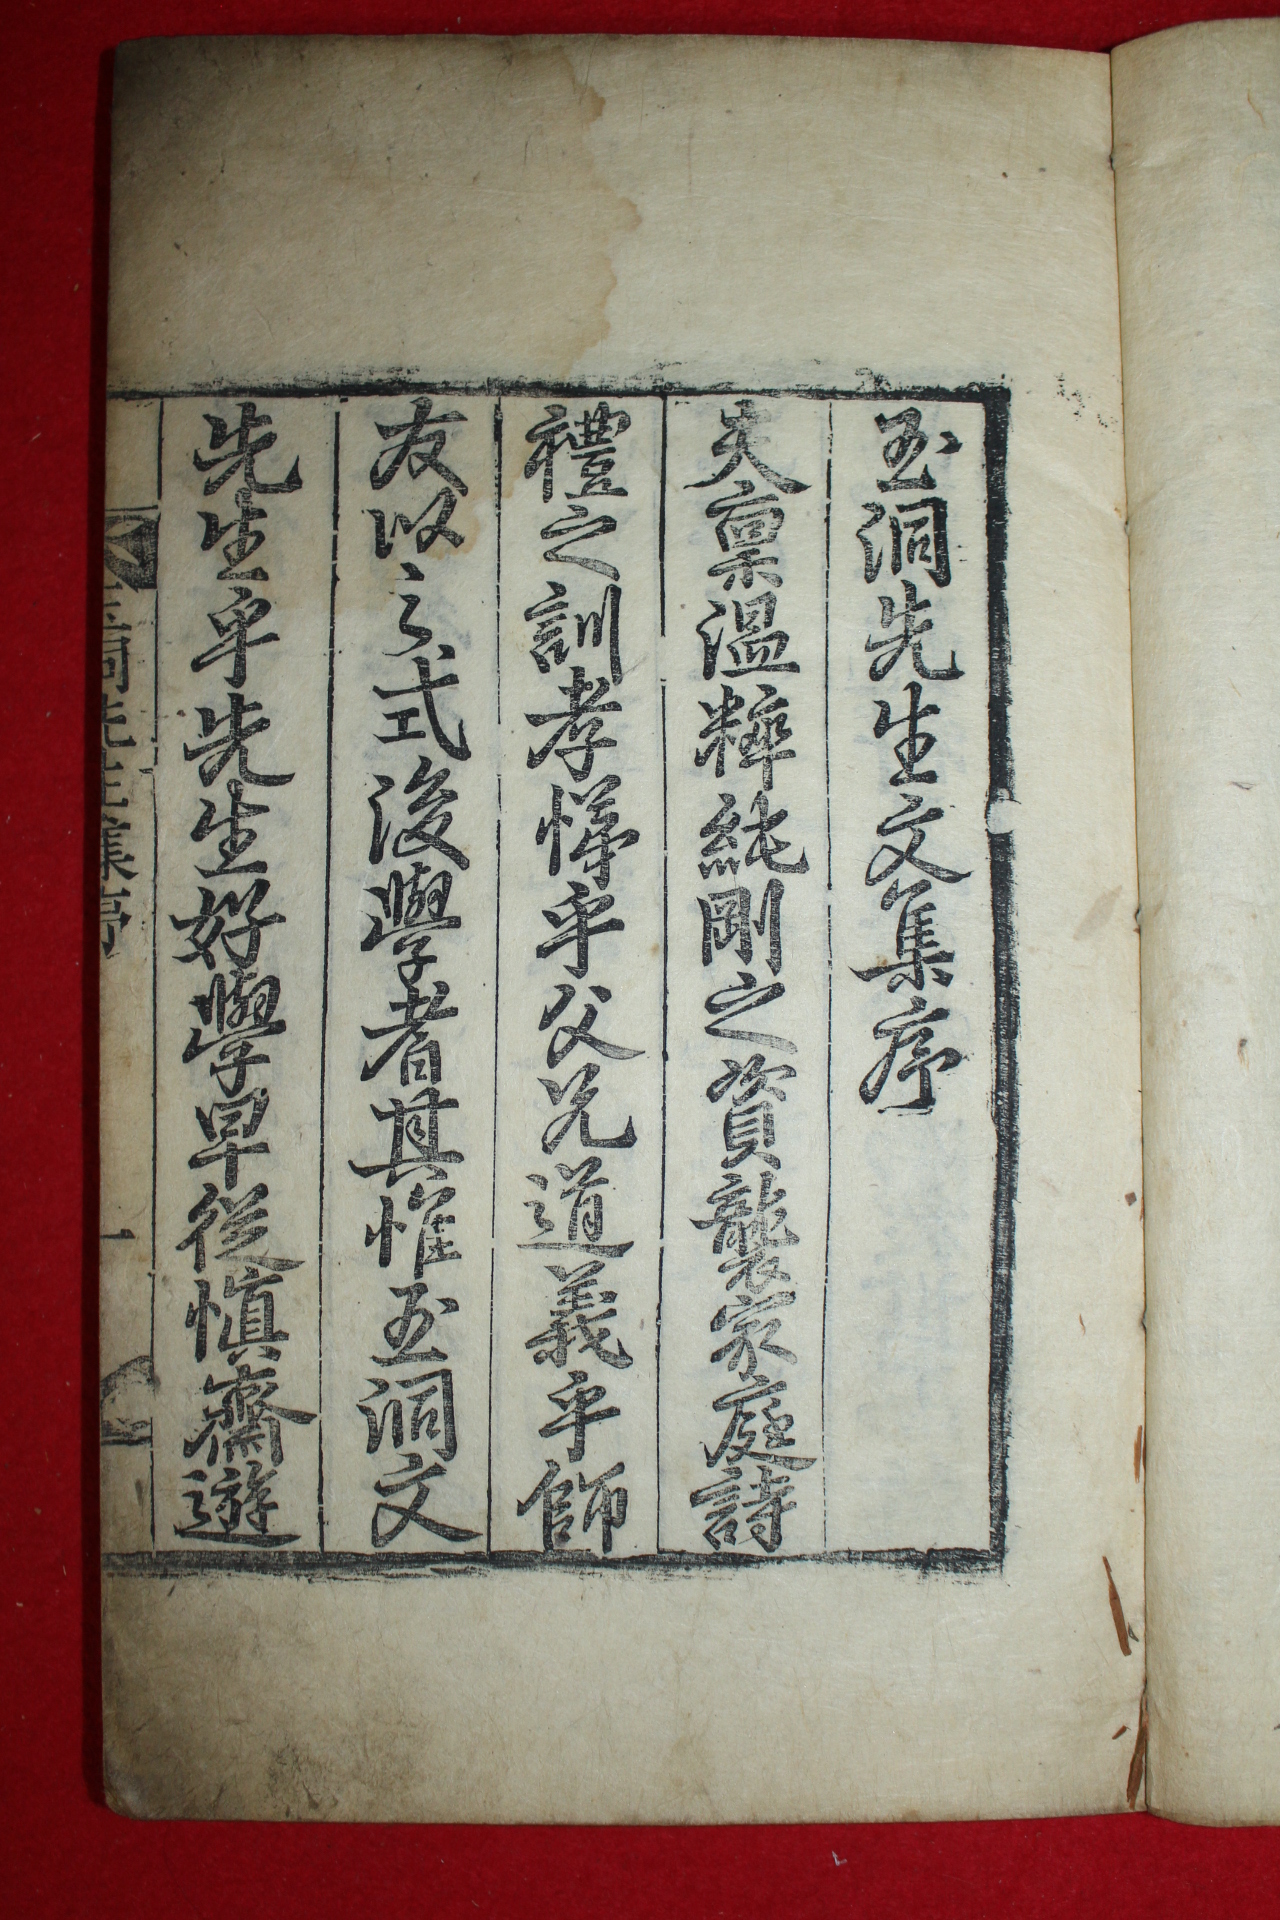 玉洞先生文集序
夫禀溫粹純剛之資襲家庭詩
禮之訓孝悌乎父兄道義乎師
友以之式後學者其惟玉洞文
先生乎先生好學早從慎齋遊
玉洞先生集序
一